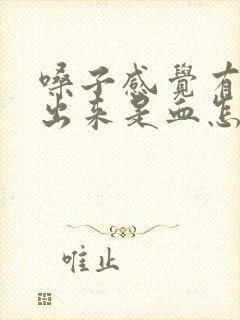 嗓子感覺有
出来是血怎
唯止